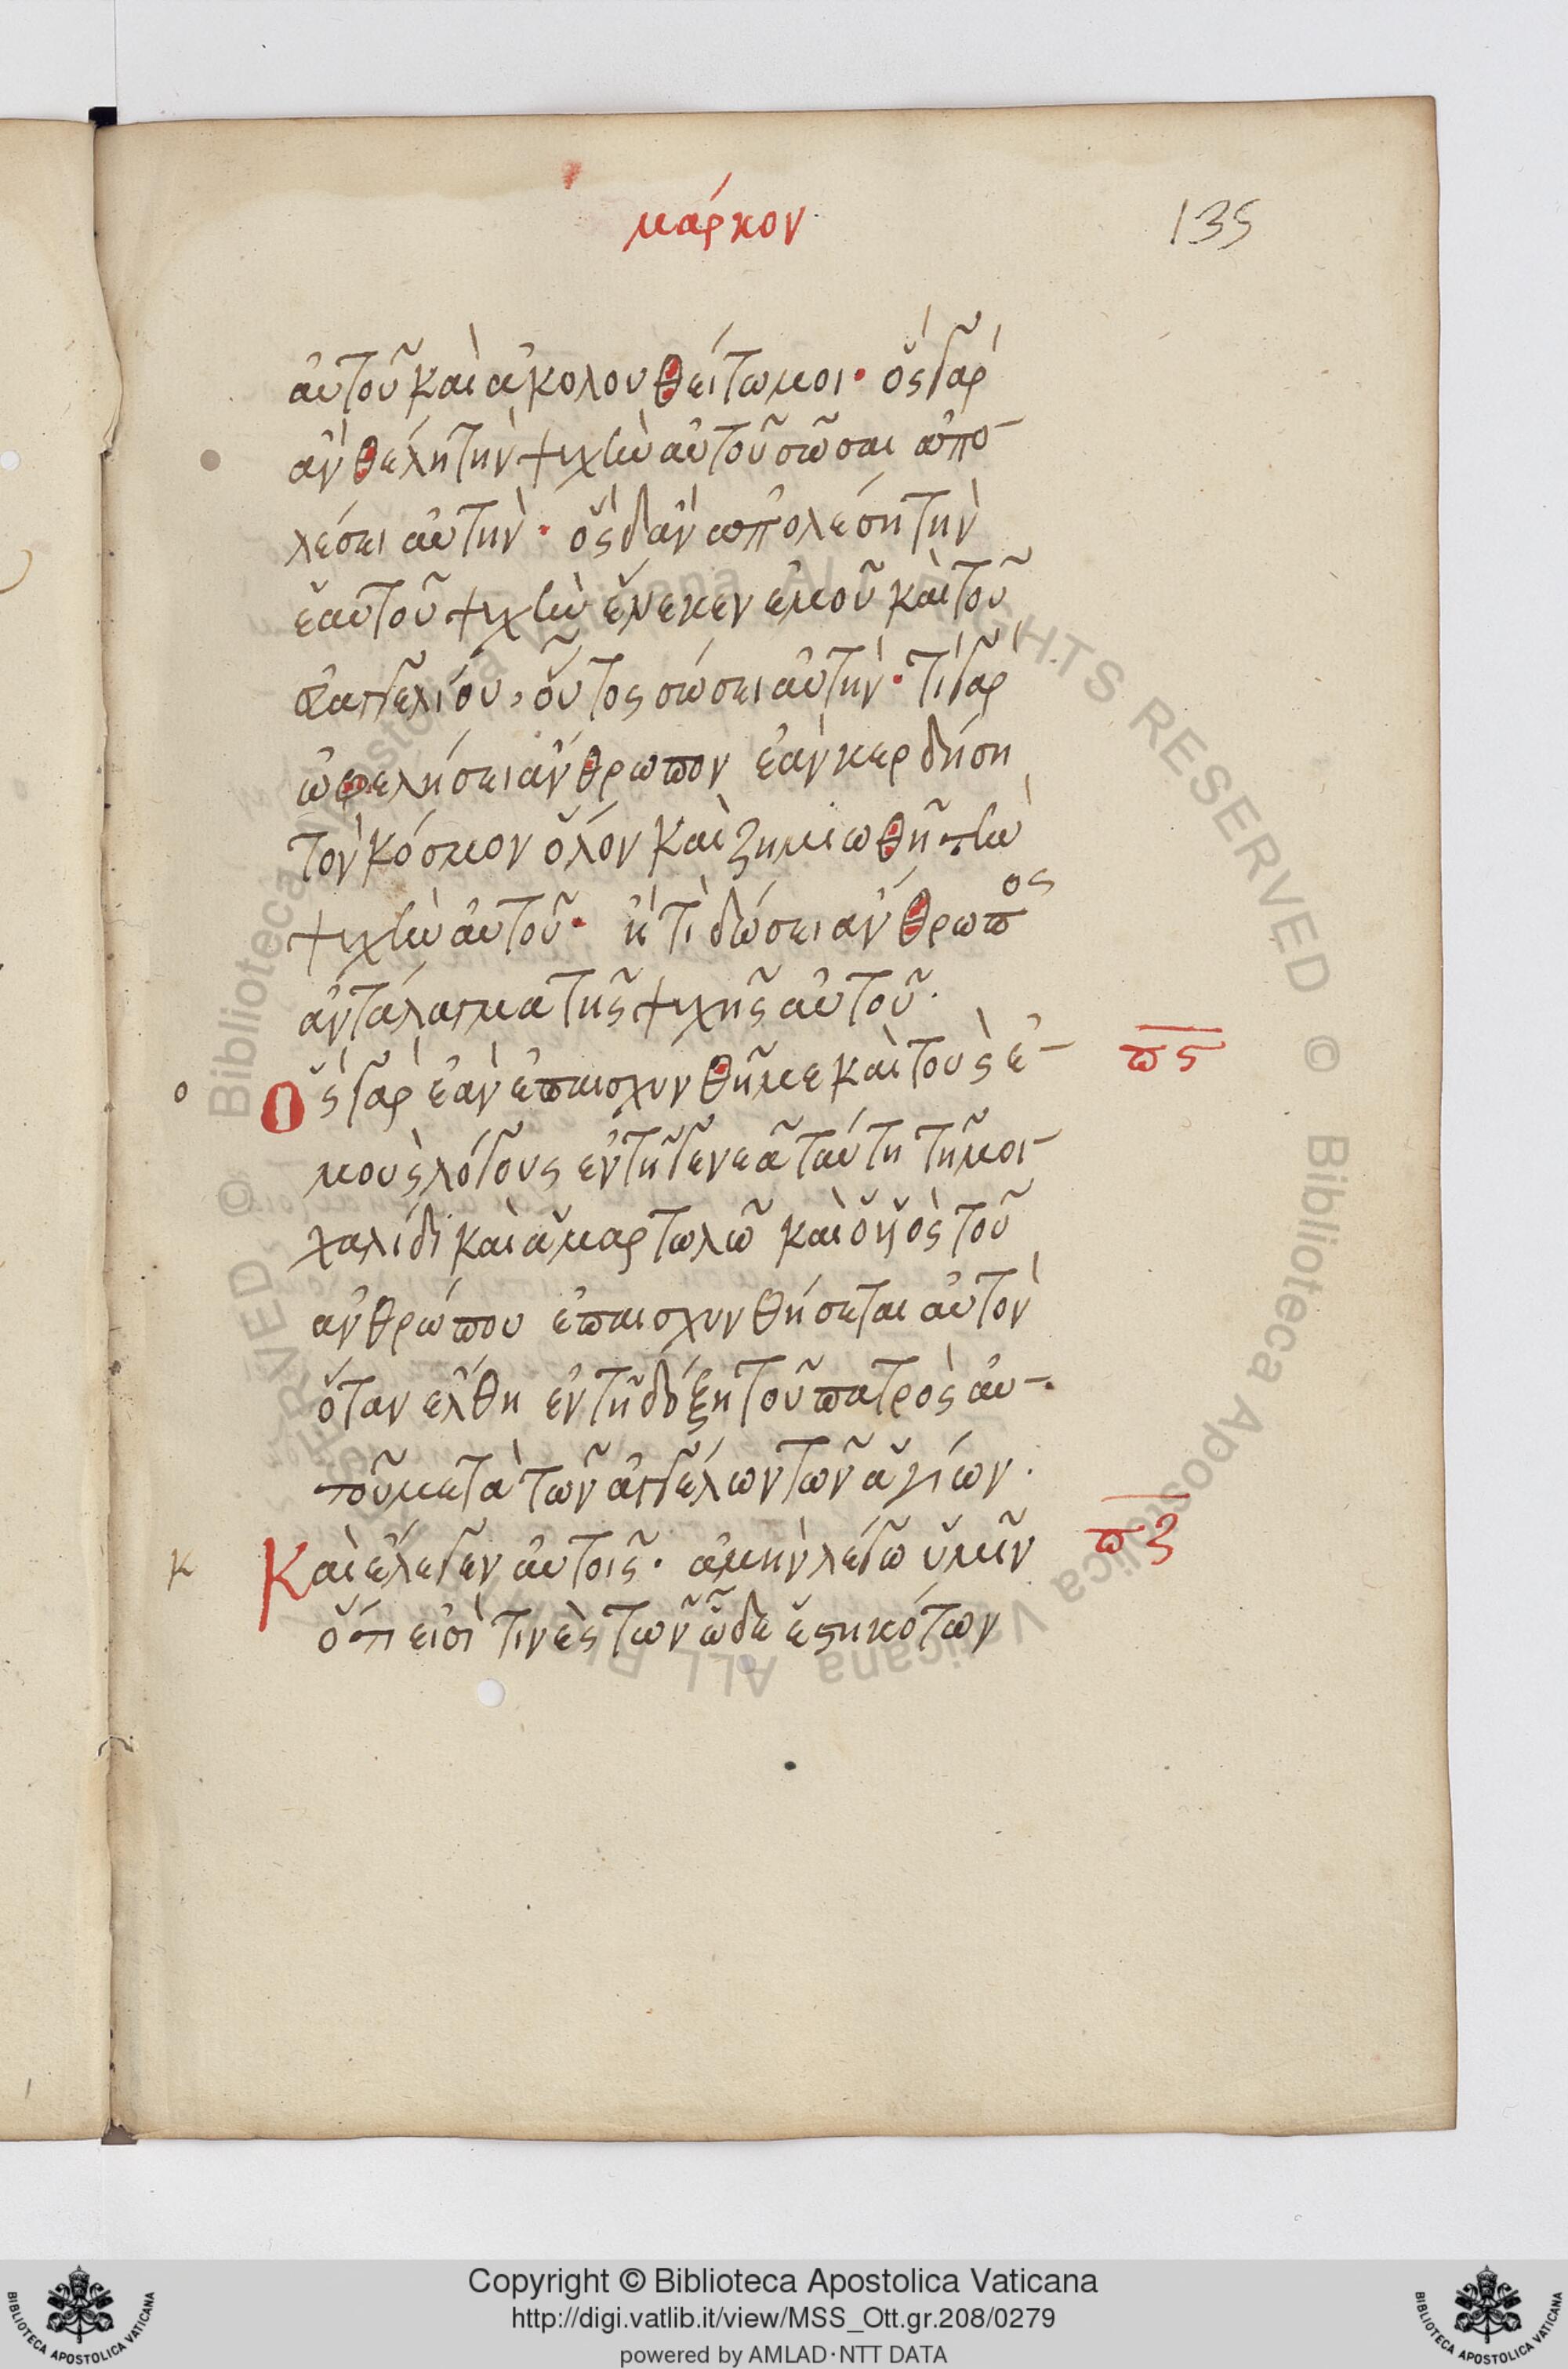 μάρκον
135
αὐτοῦ καὶ ἀκολουθείτωμοι· ὃς γὰρ
ἂν θέλη τὴν ψυχὴν αὐτοῦ σῶσαι ἀπο-
λέσει αὐτὴν· ὃς δ' ἂν ἀπολέση τὴν
ἑαυτοῦ ψυχὴν ἕνεκεν ἐμοῦ καὶ τοῦ
εὐαγγελίου, οὗτος σώσει αὐτὴν· τί γὰρ
ὠφελήσει ἄνθρωπον ἐὰν κερδήση
τὸν κόσμον ὅλον καὶ ζημιωθῆ τὴν
ψυχὴν αὐτοῦ· ἢ τὶ δώσει ἄνθρωπος
ἀντάλαγμα τῆς ψυχῆς αὐτοῦ.
ο
Ὃς γὰρ ἐὰν ἐπαισχυνθῆ με καὶ τοὺς ἐ-
πς
μοὺς λόγους ἐν τῆ γενεᾶ ταύτη τῆ μοι-
χαλίδι καὶ ἁμαρτωλῶ καὶ ὁ ϋἱὸς τοῦ
ἀνθρώπου ἐπαισχυνθήσεται αὐτὸν
ὅταν ἔλθη ἐν τῆ δόξη τοῦ πατρὸς αὐ-
τοῦ μετὰ τῶν ἀγγέλων τῶν ἁγίων.
κ
Καὶ ἔλεγεν αὐτοῖς· ἀμὴν λέγω ὑμῖν
πζ
ὅτι εἰσὶ τινὲς τῶν ὧδε ἑστηκότων
© Biblioteca Apostolica Vaticana ALL RIGHTS RESERVED © Biblioteca Apostolica Vaticana ALL RIGHTS RESERVED
BIBLIOTECA APOSTOLICA VATICANA
Copyright © Biblioteca Apostolica Vaticana
http://digi.vatlib.it/view/MSS_Ott.gr.208/0279
powered by AMLAD·NTT DATA
BIBLIOTECA APOSTOLICA VATICANA